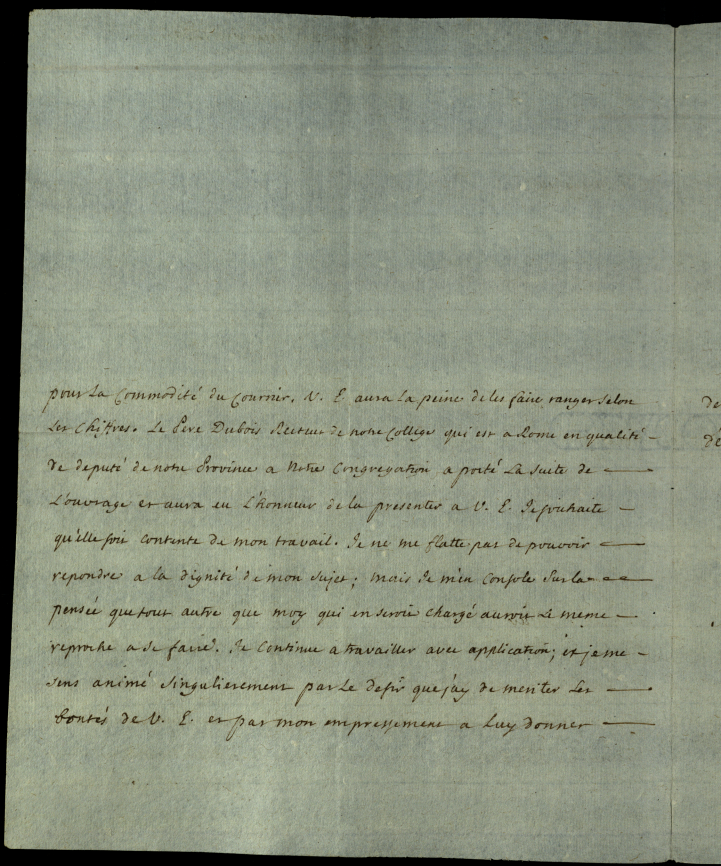 pour La Commodité du Courrier. V. E aura La peine de les faire ranger Selon
Les Chiffres. Le Pere Dubois Recteur de notre College qui est a Rome en qualité –
de deputé de notre Province a Notre Congregation a porté La Suite de —
L'ouvrage et aura eu L'honneur de la presenter a V. E. Je souhaite –
qu'elle soit Contente de mon travail. Je ne me flatte pas de pouvoir —
repondre a la dignité de mon Sujet; mais Je m'en Console Sur la – – —
pensée que tout autre que moy qui en seroit Chargé auroit Le meme –
reproche a Se faire. Je Continue a travailler avec application; et je me –
sens animé Singulierement par Le desir que j'ay de meriter Les —
bontés de V. E. et par mon empressement a Luy donner —
de